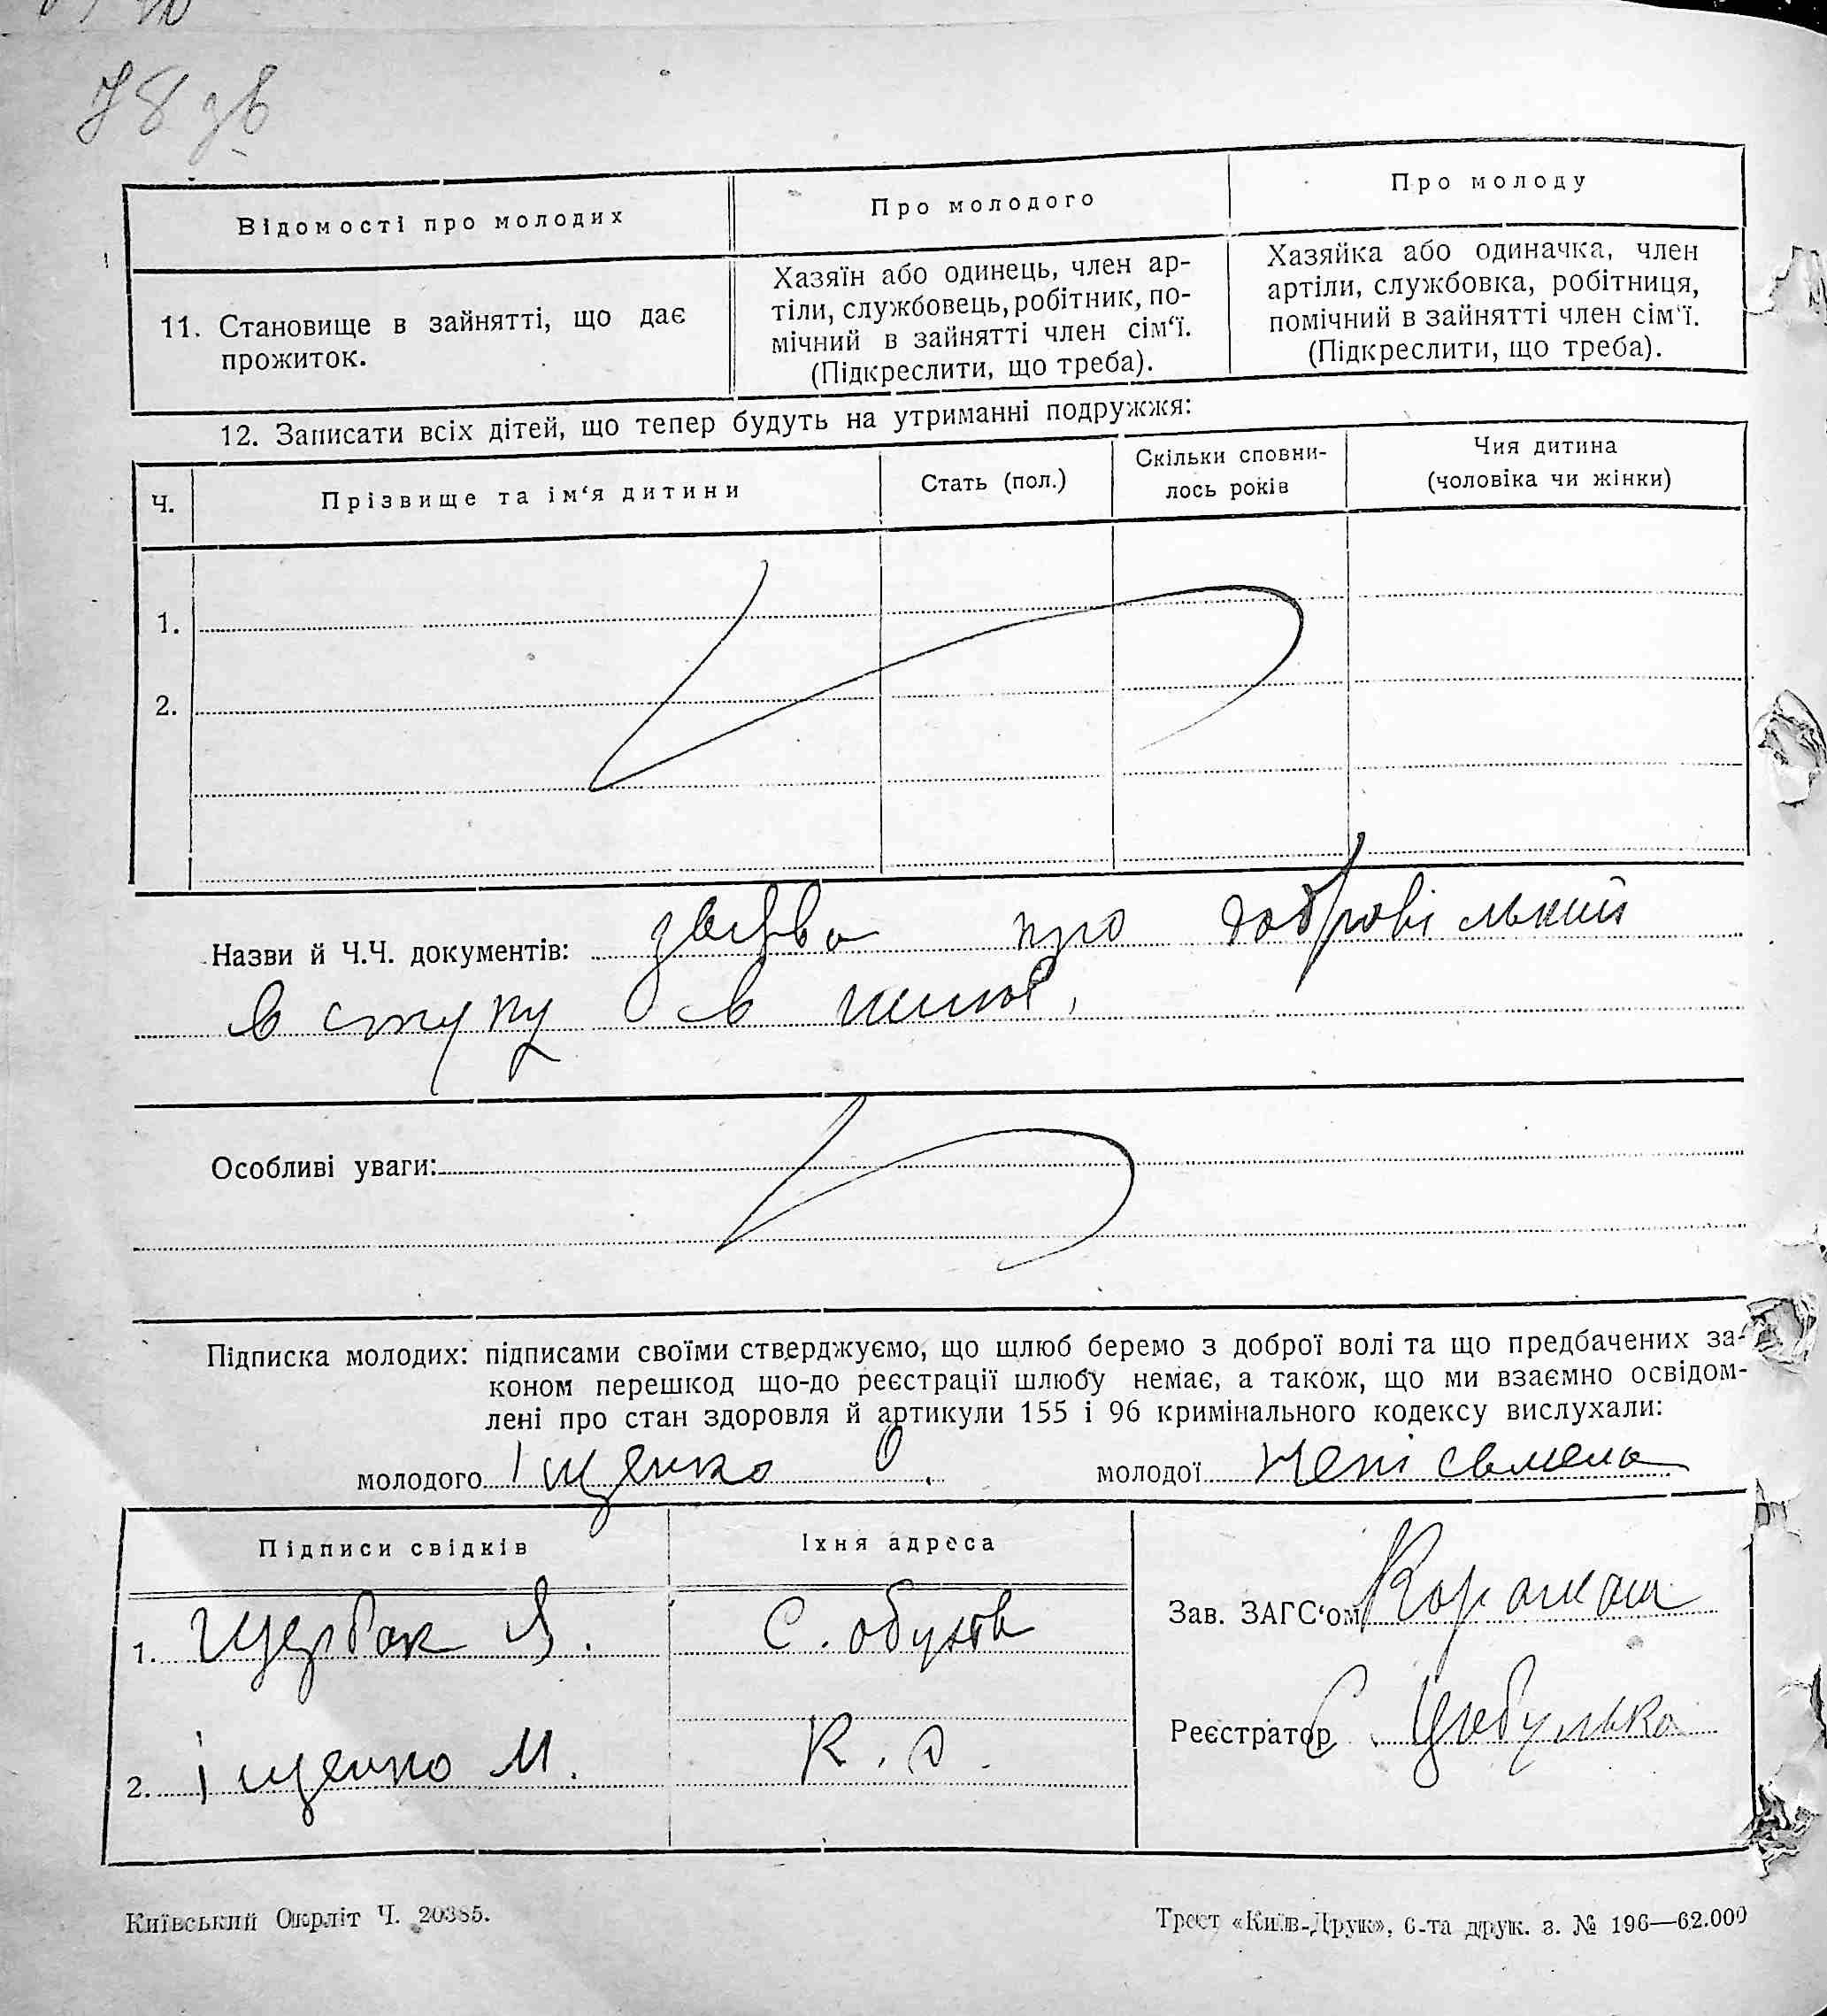 78 зв
Відомості про молодих
Про молодого
Про молоду
11. Становище в зайнятті, що дає
прожиток.
Хазяїн або одинець, член ар-
тіли, службовець, робітник, по-
мічний в зайнятті член сім‘ї.
(Підкреслити, що треба).
Хазяйка або одиначка, член
артіли, службовка, робітниця,
помічний в зайнятті член сім‘ї.
(Підкреслити, що треба).
12. Записати всіх дітей, що тепер будуть на утриманні подружжя:
Ч.
Прізвище та ім‘я дитини
Стать (пол.)
Скільки сповни-
лось років
Чия дитина
(чоловіка чи жінки)
1.
2.
Назви й Ч.Ч. документів: заява про добровільний
вступ в шлюб,
Особливі уваги:
Підписка молодих: підписами своїми стверджуємо, що шлюб беремо з доброї волі та що предбачених за-
коном перешкод що-до реєстрації шлюбу немає, а також, що ми взаємно освідом-
лені про стан здоровля й артикули 155 і 96 кримінального кодексу вислухали:
молодого Іщенко О. молодої
Підписи свідків
Їхня адреса
1. Щербак Я.
С. Обухів
2. Іщенко М.
Зав. ЗАГС‘ом
Реєстратор С Цибулько
Київський Окрліт Ч. 20385.
Трест «Київ-Друк», 6-та друк. з. № 196—62.000